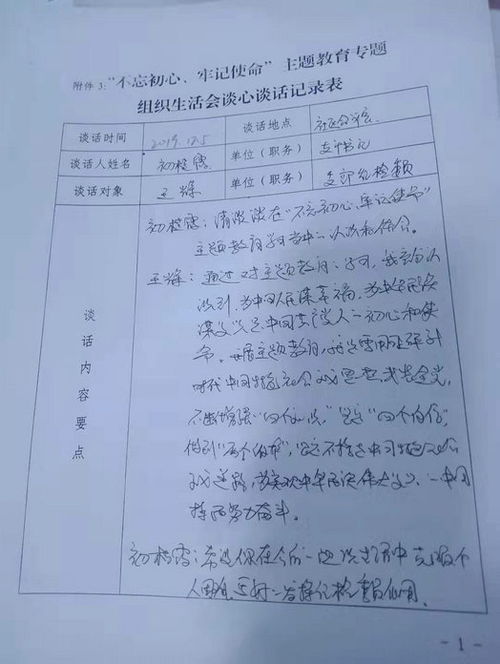 附件 3: “不忘初心、牢记使命” 主题教育专题
组织生活会谈心谈话记录表
谈话时间 2019.12.5 谈话地点 社区会议室
谈话人姓名 初桂霞 单位(职务) 支部书记
谈话对象 王辉 单位(职务) 支部纪检委员
谈话内容要点
初桂霞:请谈谈在“不忘初心、牢记使命”
主题教育学习当中 认识和体会。
王辉:通过对主题教育 学习,我
认识到,为中国人民谋幸福,为中华民族
谋复兴是中国共产党人 初心和使
命。 主题教育,
时代中国特色社会主义思想,
不断增强“四个意识”,坚定“四个自信”,
做到“两个维护”,坚定不移走中国特色社会
主义道路,为实现中华民族伟大复兴 中国
梦而努力奋斗。
初桂霞:希望你在今后 中克服个
人困难, 发挥纪检委员作用。
- 1 -